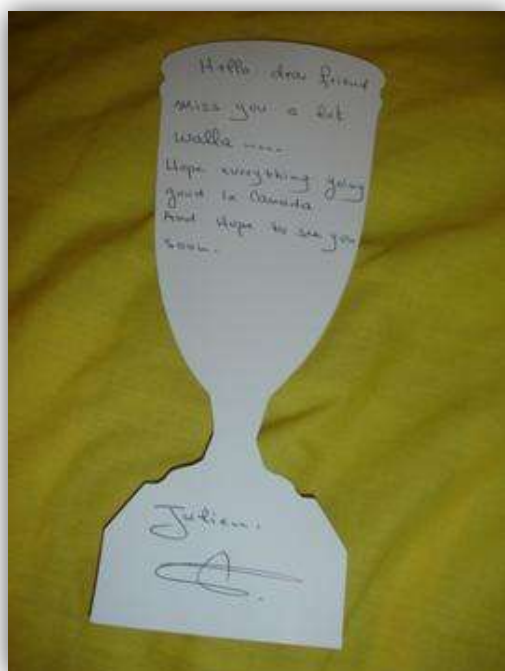 Hello dear friend
miss you a lot
walla .....
Hope everything going
good in Canada
And Hope to see you
soon.
Julien.